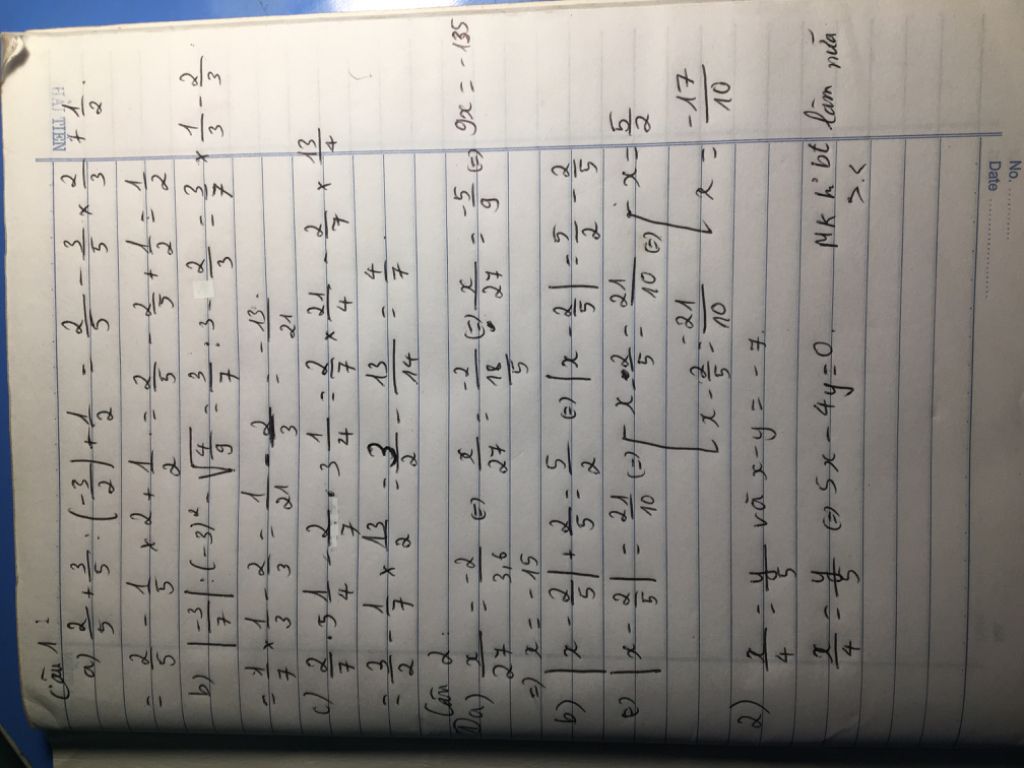 HẢI TIẾN
No. ................
Date ................
Câu 1:
a) 2/5 + 3/5 : (-3/2) + 1/2 = 2/5 - 3/5 × 2/3 + 1/2 .
= 2/5 - 1/5 × 2 + 1/2 = 2/5 - 2/5 + 1/2 = 1/2
b) |-3/7| : (-3)² - √(4/9) = 3/7 : 3 - 2/3 = 3/7 × 1/3 - 2/3
= 1/7 × 1/3 - 2/3 = 1/21 - 2/3 = -13/21 .
c) 2/7 . 5 1/4 - 2/7 . 3 1/4 = 2/7 × 21/4 - 2/7 × 13/4
= 3/2 - 1/7 × 13/2 = 3/2 - 13/14 = 4/7
Câu 2.
1) a) x/27 = -2/3,6 (=) x/27 = -2/(18/5) (=) x/27 = -5/9 (=) 9x = -135
=) x = -15
b) |x - 2/5| + 2/5 = 5/2 (=) |x - 2/5| = 5/2 - 2/5
(=) |x - 2/5| = 21/10 (=) [ x - 2/5 = 21/10 (=) [ x = 5/2
[ x - 2/5 = -21/10 [ x = -17/10
2) x/4 = y/5 và x - y = -7.
x/4 = y/5 (=) 5x - 4y = 0. MK k' bt làm nữa
>.<